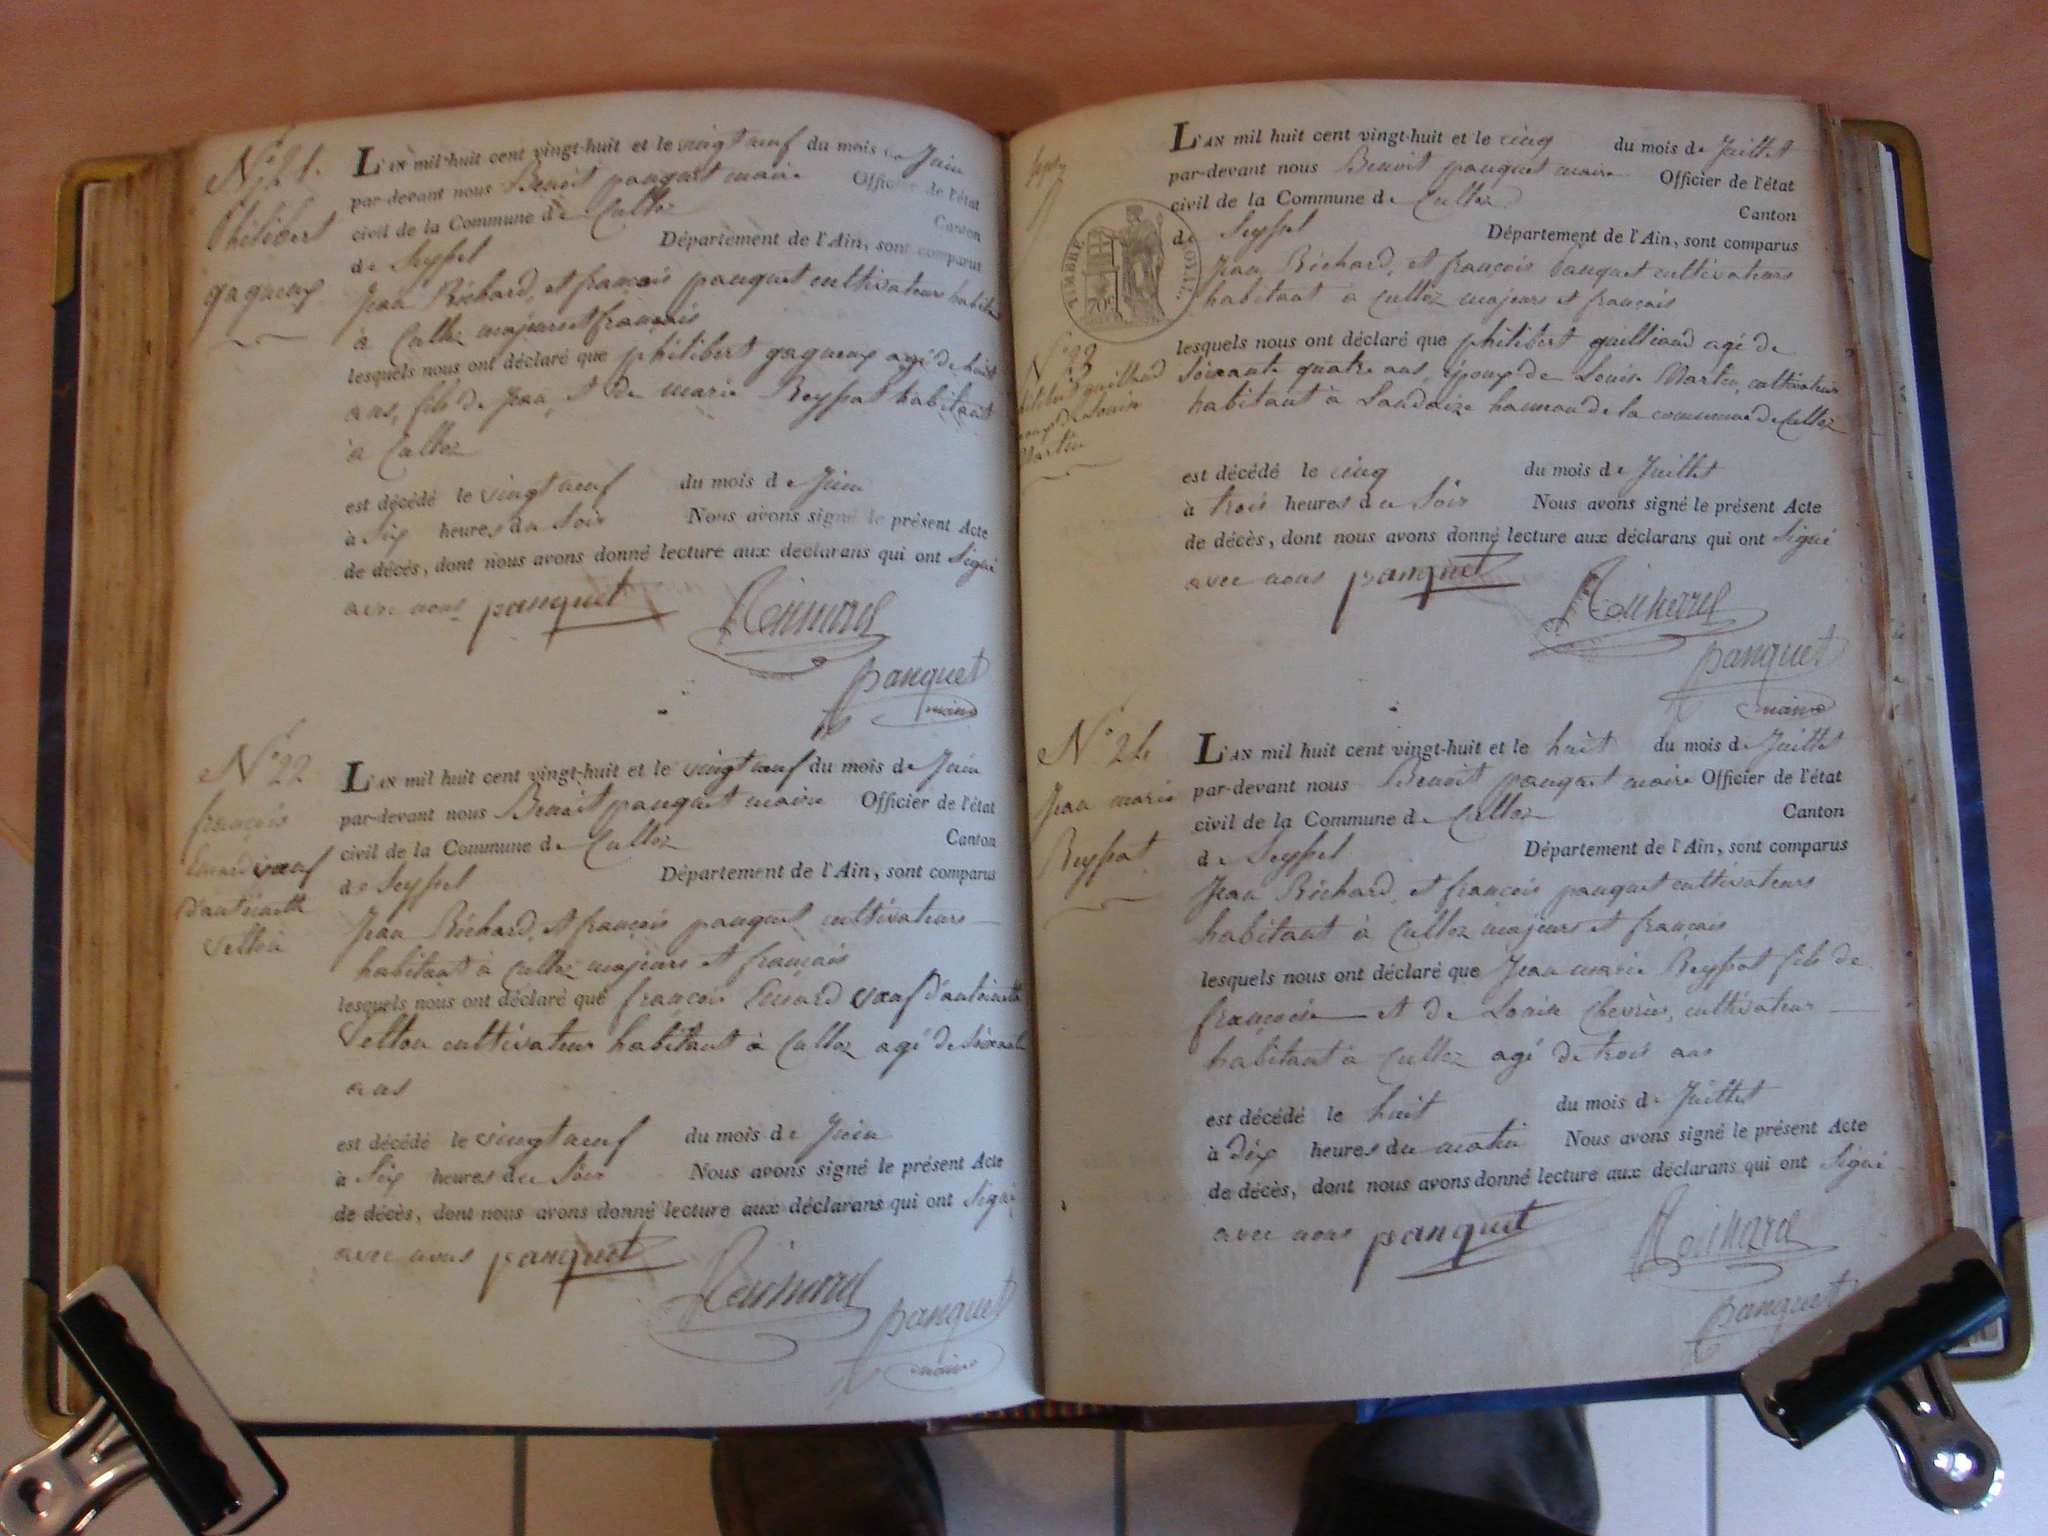 N° 21.
Philibert
gagneux
L'AN mil huit cent vingt-huit et le vingt neuf du mois de Juin
par-devant nous Benoit pauquet maire Officier de l'état
civil de la Commune de Culloz Canton
de Seyssel Département de l'Ain, sont comparus
Jean Richard, et françois pauquet cultivateurs habitant
à Culloz majeurs et français
lesquels nous ont déclaré que philibert gagneux agé de huit
ans, fils de Jean, et de marie Reyssat habitant
à Culloz
est décédé le vingt neuf du mois de Juin
à Six heures du Soir Nous avons signé le présent Acte
de décès, dont nous avons donné lecture aux déclarans qui ont Signé
avec nous pauquet Richard
pauquet
maire
N° 22
françois
veuf
d'antoinette
L'AN mil huit cent vingt-huit et le vingt neuf du mois de Juin
par-devant nous Benoit pauquet maire Officier de l'état
civil de la Commune de Culloz Canton
de Seyssel Département de l'Ain, sont comparus
Jean Richard, et françois pauquet cultivateurs
habitant à Culloz majeurs et français
lesquels nous ont déclaré que françois veuf d'antoinette
cultivateur habitant à Culloz agé de Soixante
ans
est décédé le vingt neuf du mois de Juin
à Six heures du Soir Nous avons signé le présent Acte
de décès, dont nous avons donné lecture aux déclarans qui ont Signé
avec nous pauquet Richard
pauquet
maire
TIMBRE ROYAL
70c
N° 23
philibert guilliand
époux de Louise
Martin
L'AN mil huit cent vingt-huit et le cinq du mois de Juillet
par-devant nous Benoit pauquet maire Officier de l'état
civil de la Commune de Culloz Canton
de Seyssel Département de l'Ain, sont comparus
Jean Richard, et françois pauquet cultivateurs
habitant à Culloz majeurs et français
lesquels nous ont déclaré que philibert guilliand agé de
Soixante quatre ans, époux de Louise Martin, cultivateur
habitant à Landaize hameau de la commune de Culloz
est décédé le cinq du mois de Juillet
à trois heures du Soir Nous avons signé le présent Acte
de décès, dont nous avons donné lecture aux déclarans qui ont Signé
avec nous pauquet Richard
pauquet
maire
N° 24
Jean marie
Reyssat
L'AN mil huit cent vingt-huit et le huit du mois de Juillet
par-devant nous Benoit pauquet maire Officier de l'état
civil de la Commune de Culloz Canton
de Seyssel Département de l'Ain, sont comparus
Jean Richard, et françois pauquet cultivateurs
habitant à Culloz majeurs et français
lesquels nous ont déclaré que Jean marie Reyssat fils de
et de Louise cultivateur
habitant à Culloz agé de trois ans
est décédé le huit du mois de Juillet
à dix heures du matin Nous avons signé le présent Acte
de décès, dont nous avons donné lecture aux déclarans qui ont Signé
avec nous pauquet Richard
pauquet